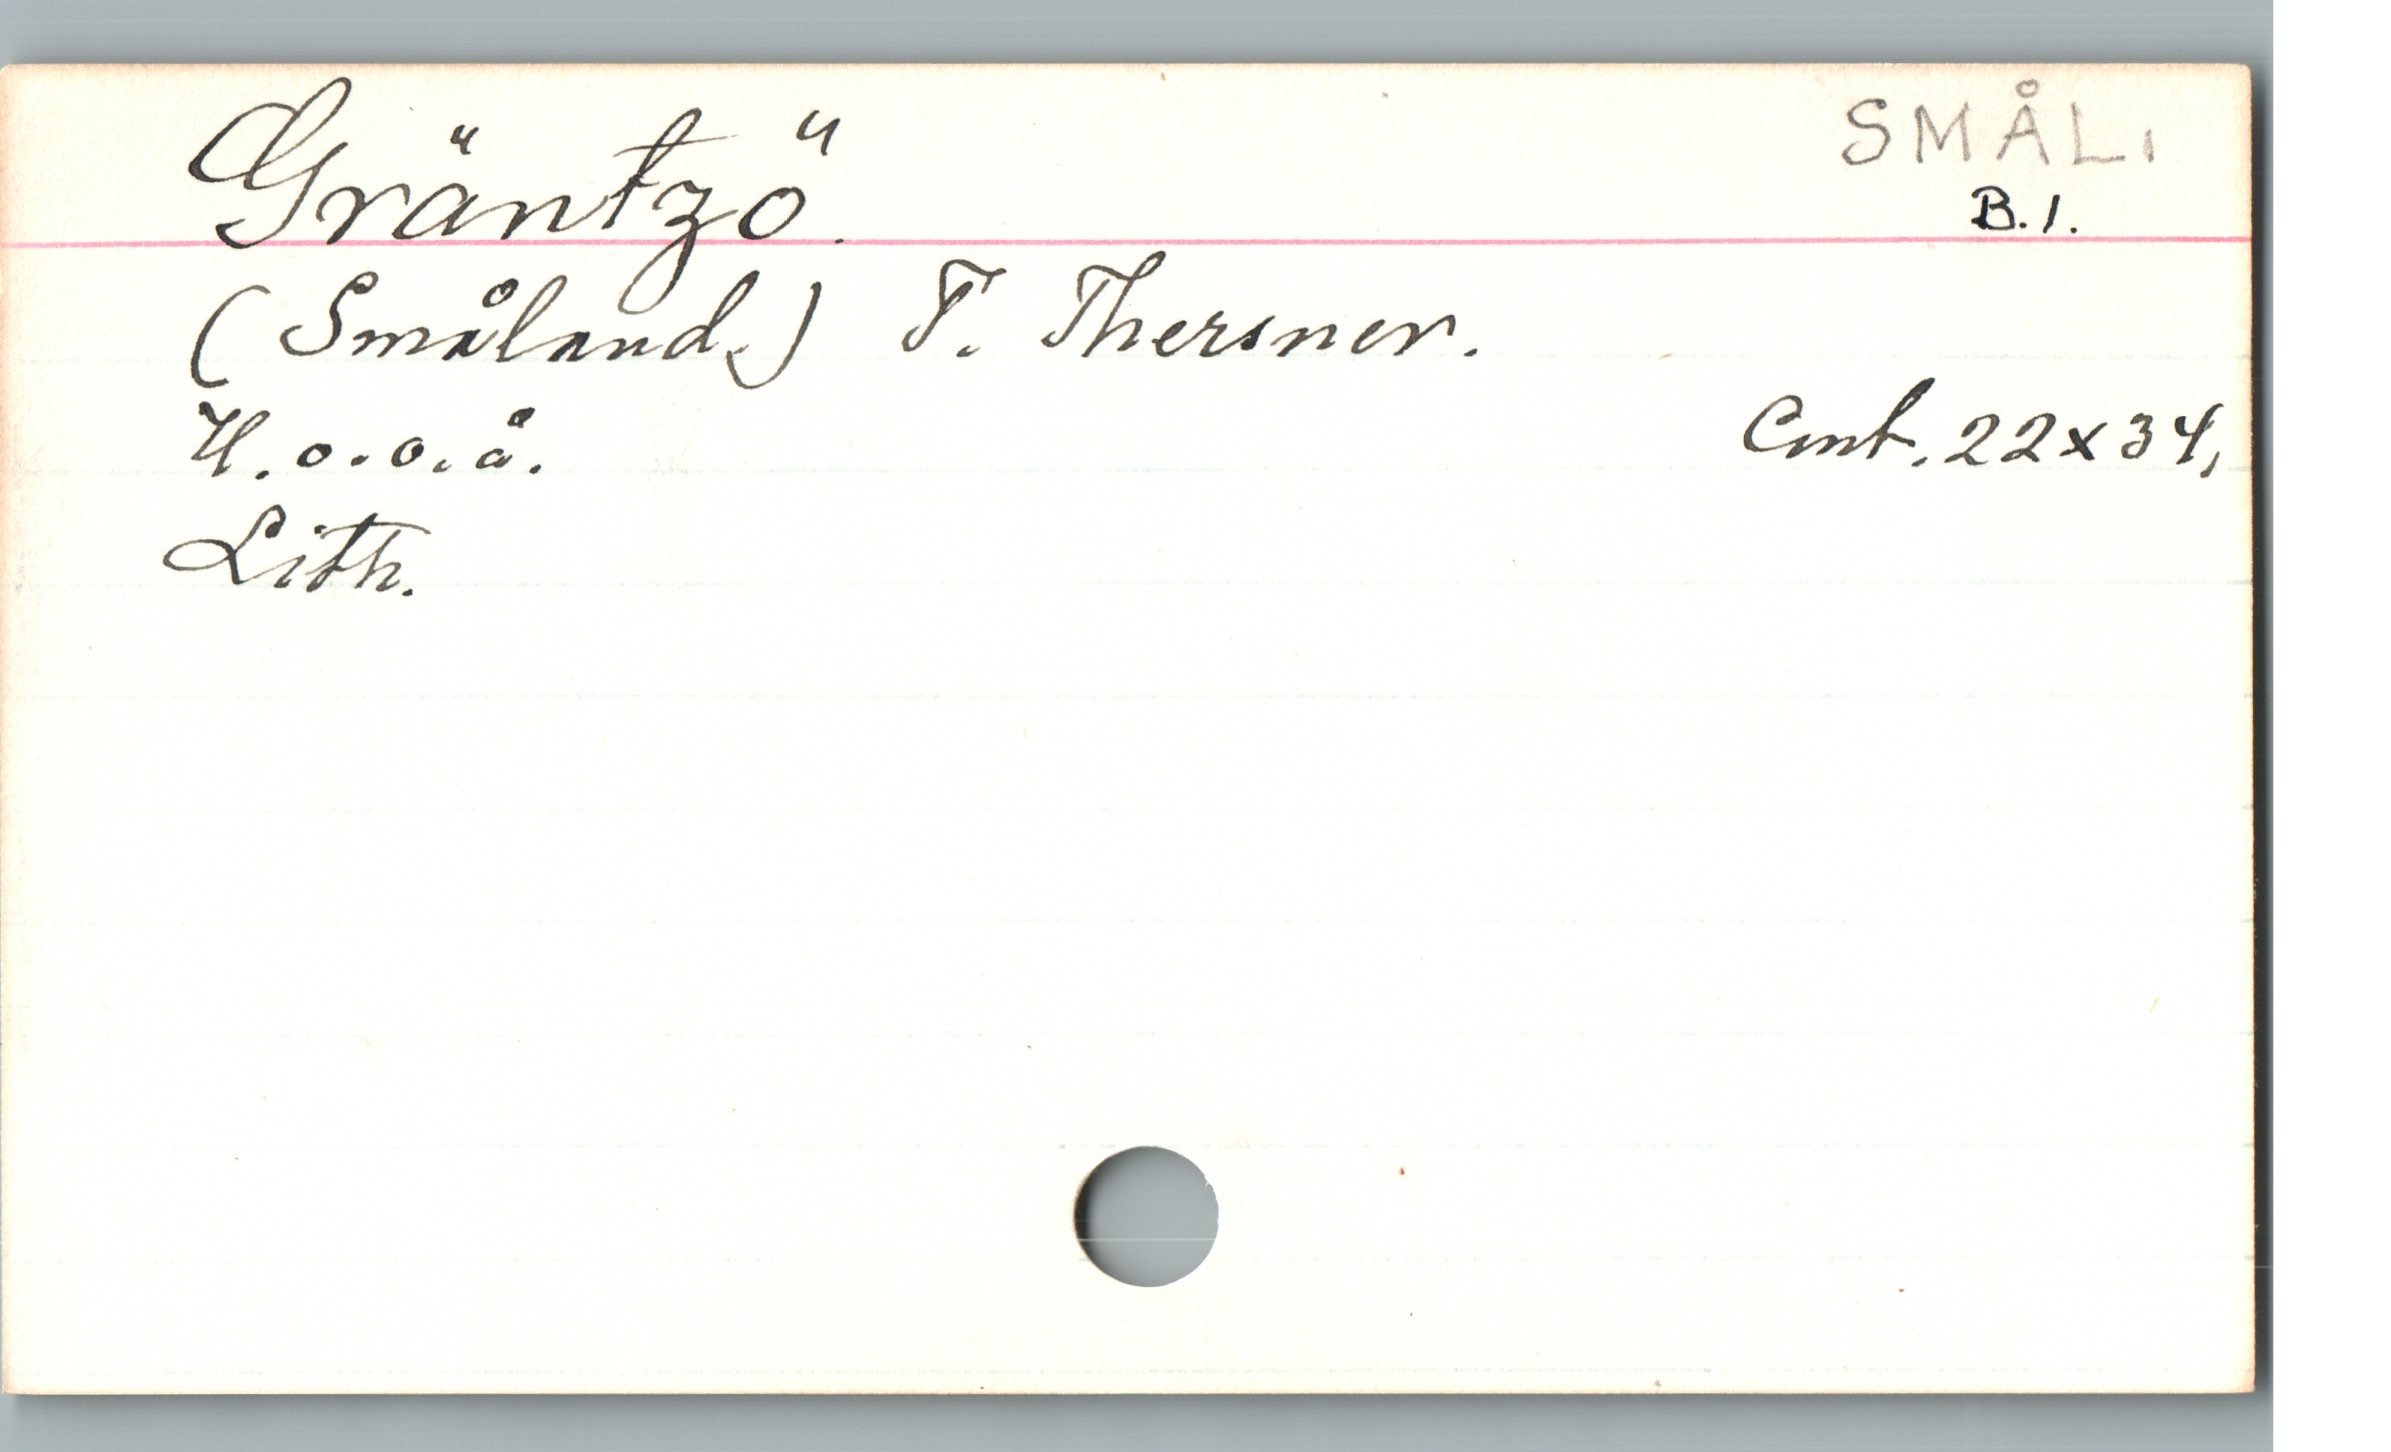 Gräntzö.
SMÅL.
B.1.
(Småland.) T. Thersner.
U.o.o.å.
Cmt. 22x34,
Lith.